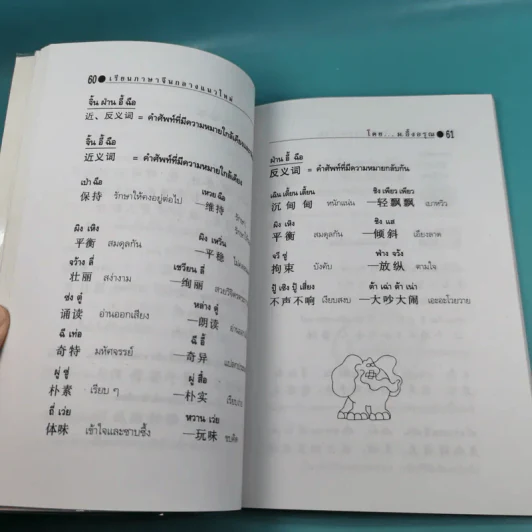 60 ● เรียนภาษาจีนกลางแนวใหม่
จิ้น ฝ่าน อี้ ฉือ
近、反义词 = คำศัพท์ที่มีความหมายใกล้เคียง
จิ้น อี้ ฉือ
近义词 = คำศัพท์ที่มีความหมายใกล้เคียง
เป่า ฉือ เหวย ฉือ
保持 รักษาให้คงอยู่ต่อไป —维持 รักษา
ผิง เหิง ผิง เหวิ่น
平衡 สมดุลกัน —平稳
จ้วง ลี่ เซวี่ยน ลี่
壮丽 สง่างาม —绚丽
ซ่ง ตู๋ หล่าง ตู๋
诵读 อ่านออกเสียง —朗读
ฉี เท่อ ฉี อี้
奇特 มหัศจรรย์ —奇异
ผู่ ซู่ ผู่ สือ
朴素 เรียบ ๆ —朴实
ถี่ เว่ย หวาน เว่ย
体味 เข้าใจและซาบซึ้ง —玩味 ขบคิด
โดย... ม.อึ้งอรุณ ● 61
ฝ่าน อี้ ฉือ
反义词 = คำศัพท์ที่มีความหมายกลับกัน
เฉิน เตี้ยน เตี้ยน ชิง เพียว เพียว
沉甸甸 หนักแน่น —轻飘飘 เบาหวิว
ผิง เหิง ชิง แส
平衡 สมดุลกัน —倾斜 เอียงลาด
จวี ซู่ ฟ่าง จ้ง
拘束 บังคับ —放纵 ตามใจ
ปู้ เซิง ปู้ เสี่ยง ต้า เฉ่า ต้า เน่า
不声不响 เงียบสงบ —大吵大闹 เอะอะโวยวาย